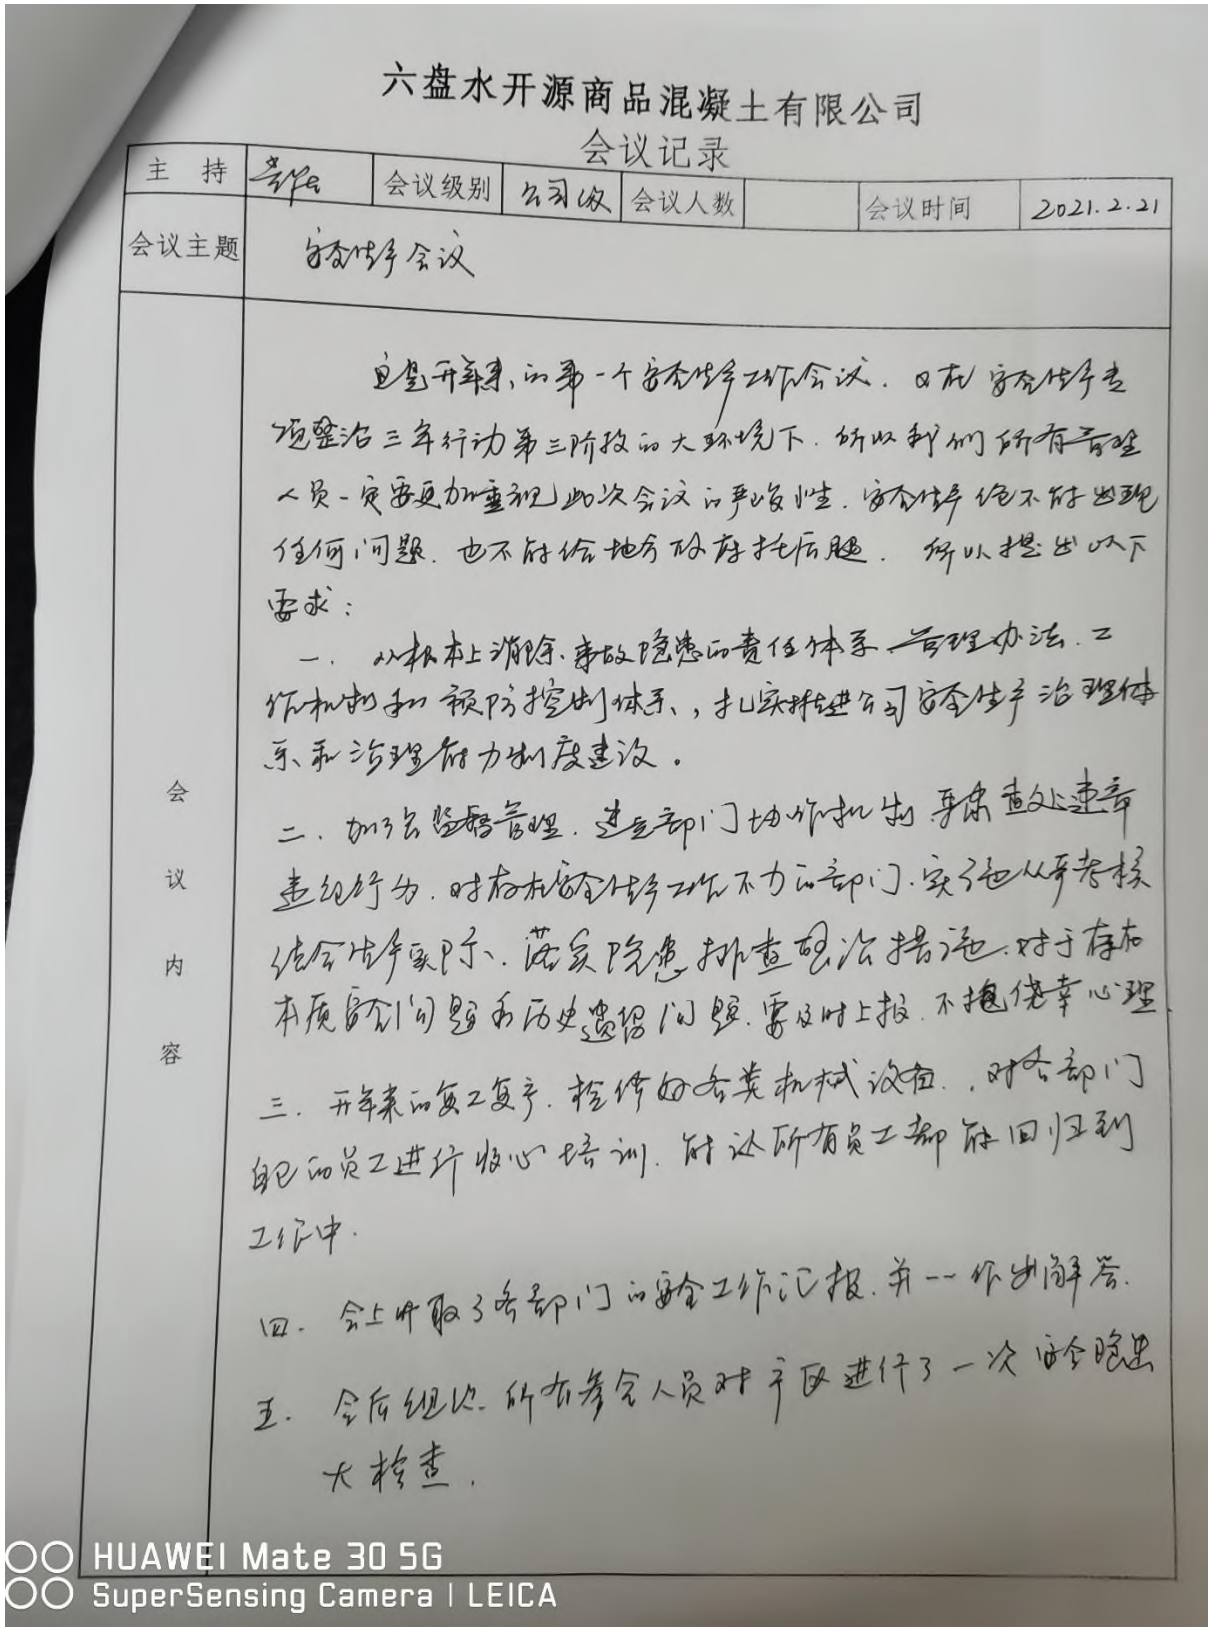 六盘水开源商品混凝土有限公司
会议记录
主 持 会议级别 公司级 会议人数 会议时间 2021.2.21
会议主题 安全生产会议
会议内容
这是开年来的第一个安全生产工作会议.又在安全生产专
项整治三年行动第三阶段的大环境下.所以我们所有管理
人员一定要更加重视此次会议的严峻性.安全生产绝不能出现
任何问题.也不能给地方政府托后腿.所以提出以下
要求:
一.从根本上消除事故隐患的责任体系、管理办法.工
作机制和预防控制体系,扎实推进公司安全生产治理体
系和治理能力制度建设。
二.加强监督管理.建立部门协作机制.严肃查处违章
违纪行为.对存在安全生产工作不力的部门.实施从严考核
结合生产实际、落实隐患排查整治措施.对于存在
本质安全问题和历史遗留问题.要及时上报.不抱侥幸心理.
三.开年来的复工复产.检修好各类机械设备.,对各部门
自己的员工进行收心培训.能让所有员工都能回归到
工作中.
四.会上听取了各部门的安全工作汇报.并一一作出解答.
五.会后组织所有参会人员对厂区进行了一次安全隐患
大检查.
HUAWEI Mate 30 5G
SuperSensing Camera | LEICA